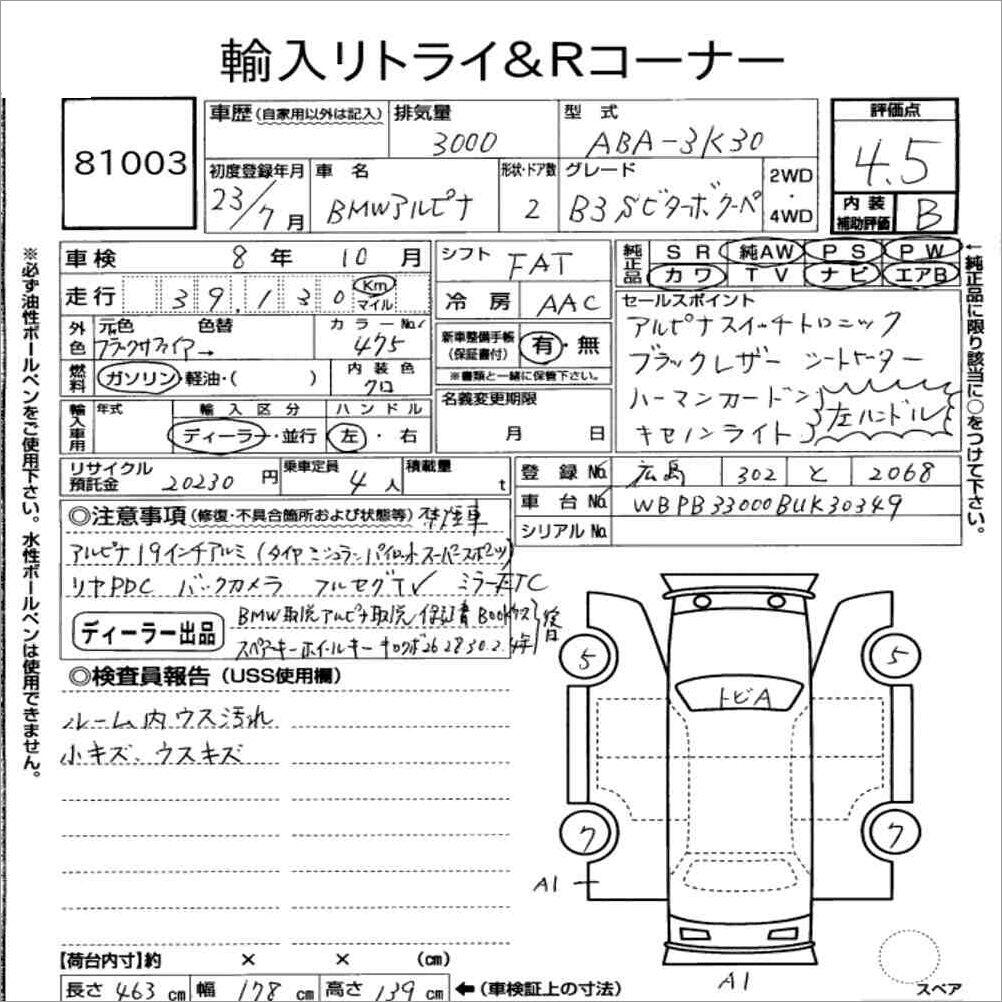 輸入リトライ&Rコーナー
81003
車歴(自家用以外は記入) 排気量 3000 型式 ABA-3K30
評価点 4.5
初度登録年月 23/7月 車名 BMWアルピナ 形状・ドア数 2 グレード B3 Sビターボクーペ 2WD・4WD
内装補助評価 B
車検 8年 10月
走行 39,130 Km マイル
シフト FAT
冷房 AAC
純正品 SR 純AW PS PW
カワ TV ナビ エアB
←純正品に限り該当に○をつけて下さい。
外色 元色 色替 カラーNo. 475
ブラックサファイア→
燃料 ガソリン・軽油・( ) 内装色 クロ
新車整備手帳(保証書付) 有・無
※書類と一緒に保管下さい。
名義変更期限 月 日
セールスポイント
アルピナスイッチトロニック
ブラックレザー シートヒーター
ハーマンカードン
キセノンライト
左ハンドル
輸入車用 年式 輸入区分 ハンドル
ディーラー・並行 左・右
リサイクル預託金 20230円 乗車定員 4人 積載量 t
登録No. 広島 302 と 2068
車台No. WBPB33000BUK30349
シリアルNo.
◎注意事項(修復・不具合箇所および状態等)
アルピナ19インチアルミ(タイヤ ミシュランパイロットスーパースポーツ)
リヤPDC バックカメラ フルセグTV ミラーETC
ディーラー出品
BMW取説 アルピナ取説 保証書 Bookケース
スペアキー ホイールキー キロクボ26.28.30.2.4年
後日
◎検査員報告(USS使用欄)
ルーム内ウス汚れ
小キズ、ウスキズ
トビA
5 5
7 7
A1
A1
スペア
【荷台内寸】約 × × (cm)
長さ 463cm 幅 178cm 高さ 139cm ←(車検証上の寸法)
※必ず油性ボールペンをご使用下さい。水性ボールペンは使用できません。